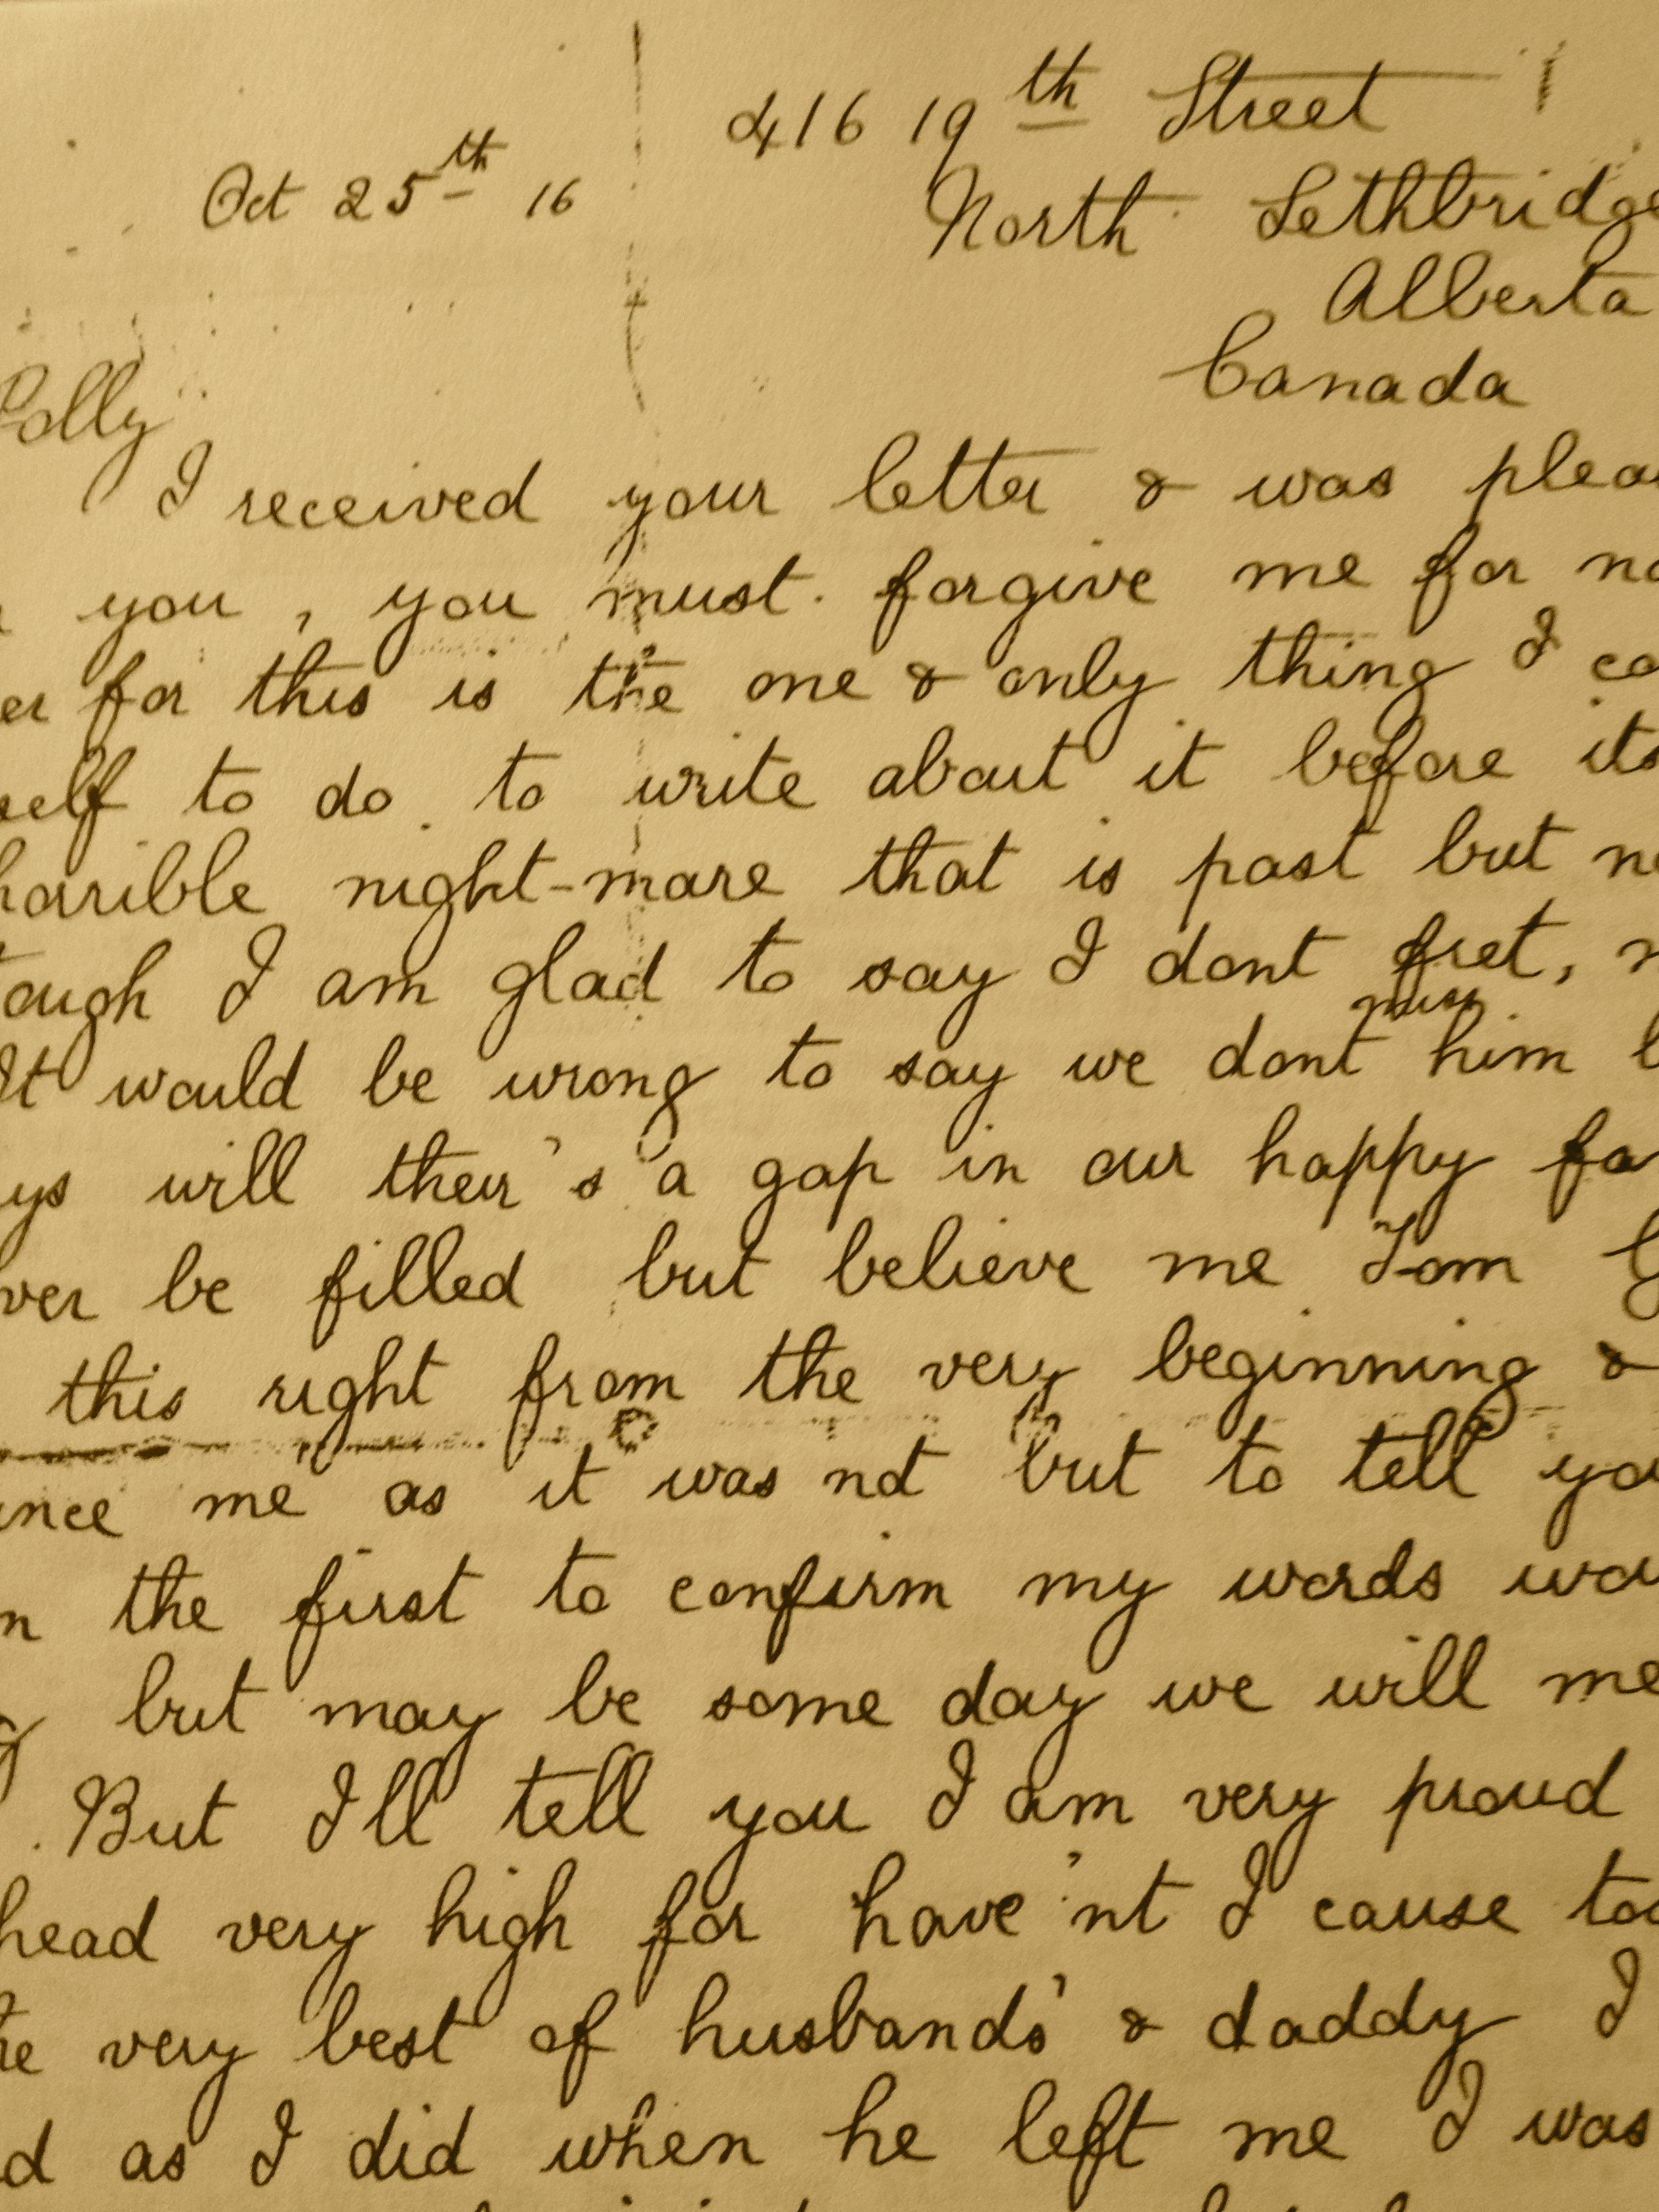 416 19th Street
Oct 25th 16
North Lethbridge
Alberta
Canada
Polly
I received your letter & was plea
you, you must. forgive me for no
er for this is the one & only thing I co
self to do. to write about it before its
horrible night-mare that is past but no
ough I am glad to say I dont fret, n
It would be wrong to say we dont miss him b
ys will their's a gap in our happy fa
ver be filled but believe me Tom G
this right from the very beginning &
ince me as it was not but to tell yo
n the first to confirm my words wou
g but may be some day we will me
. But I'll tell you I am very proud
head very high for have'nt I cause too
he very best of husbands' & daddy I
d as I did when he left me I was